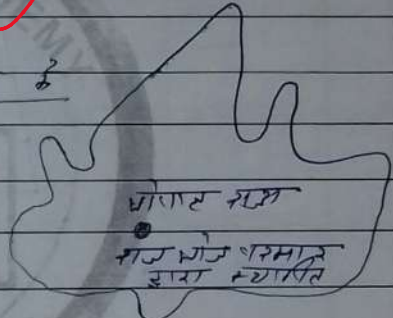 है
भोपाल राज्य
राज भोज परमार
द्वारा स्थापित